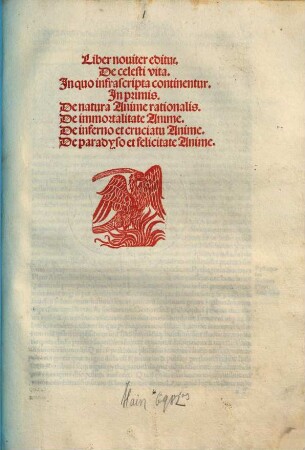 Liber noviter editur.
De celesti vita.
In quo infrascripta continentur.
In primis.
De natura Anime rationalis.
De immortalitate Anime.
De inferno et cruciatu Anime.
De paradyso et felicitate Anime.
Hain